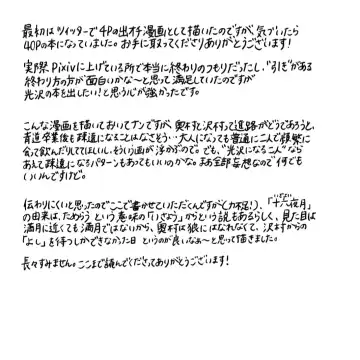 最初はツイッターで4Pの出オチ漫画として描いたのですが、気づいたら
40Pの本になっていました。お手に取ってくださりありがとうございます!
実際Pixivに上げている所で本当に終わりのつもりだったし、"引き"がある
終わり方の方が面白いかな〜と思って満足していたのですが
光沢の本を出したい!と思う心が強かったです。
こんな漫画を描いておいてナンですが、奥村と沢村って進路がどうであろうと、
青道卒業後も疎遠になることはなさそう…大人になっても普通に二人で頻繁に
会って飲んだりしてほしいし、そういう画が浮かぶので。でも、"光沢になる二人"なら
あえて疎遠になるパターンもあってもいいのかな。まぁ全部妄想なので何でも
いいんですけど。
伝わりにくいと思ったのでここで書かせていただくんですが(力不足!)、「十六夜月」
いざよい
の由来は、ためらうという意味の「いさよう」からという説もあるらしく、見た目は
満月に近くても満月ではないから、奥村は狼にはなれなくて、沢村からの
「よし」を待つしかできなかった日 というのが良いなぁ〜と思って描きました。
長々すみません。ここまで読んでくださってありがとうございます!